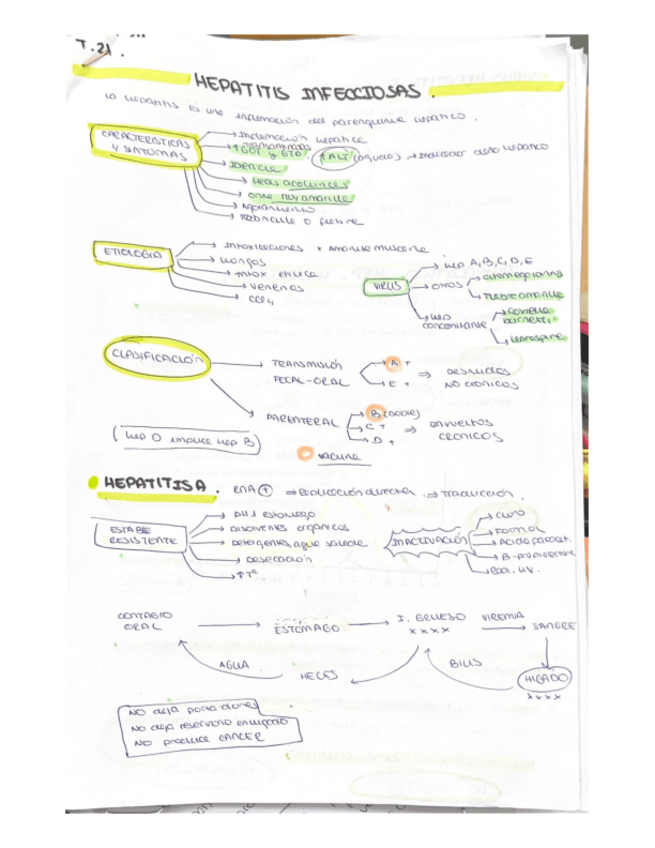 T.21.
HEPATITIS INFECCIOSAS.
La hepatitis es una inflamación del parenquima hepático.
CARACTERÍSTICAS Y SÍNTOMAS
→ Inflamación hepática
→ ↑ GOT y GTP transaminasas
↑ALT (aguda) → Indicador daño hepático
→ Ictericia
→ Heces acolúricas
→ Orina muy amarilla
→ Agotamiento
→ Febrícula o fiebre
ETIOLOGÍA
→ Intoxicaciones x Amanita muscaria
→ Hongos
→ Intox etílica
→ Venenos
→ CCl4
VIRUS
→ Hep A, B, C, D, E
→ Otros
→ Citomegalovirus
→ Fiebre amarilla
→ Hep concomitante
→ Coxiella burnetti
→ Leptospira
CLASIFICACIÓN
→ TRANSMISIÓN FECAL-ORAL
A +
E +
⇒ DESNUDOS NO CRÓNICOS
→ PARENTERAL
B (DNA)
C +
D +
⇒ ENVUELTOS CRÓNICOS
(Hep D implica Hep B)
vacuna
HEPATITIS A. RNA (+) ⇒ Traducción.
ESTABLE RESISTENTE
→ pH 1 estómago
→ Disolventes orgánicos
→ Detergentes, agua salada
→ Desecación
→ ↑Tª
INACTIVACIÓN
→ Cloro
→ Formol
→ Ácido paracet.
→ B-propiolactona
→ Rad. U.V.
CONTAGIO ORAL → ESTÓMAGO → I. GRUESO xxxx VIREMIA → SANGRE
AGUA HECES BILIS HÍGADO
xxxx
NO deja portadores
NO deja reservorio
NO produce CÁNCER